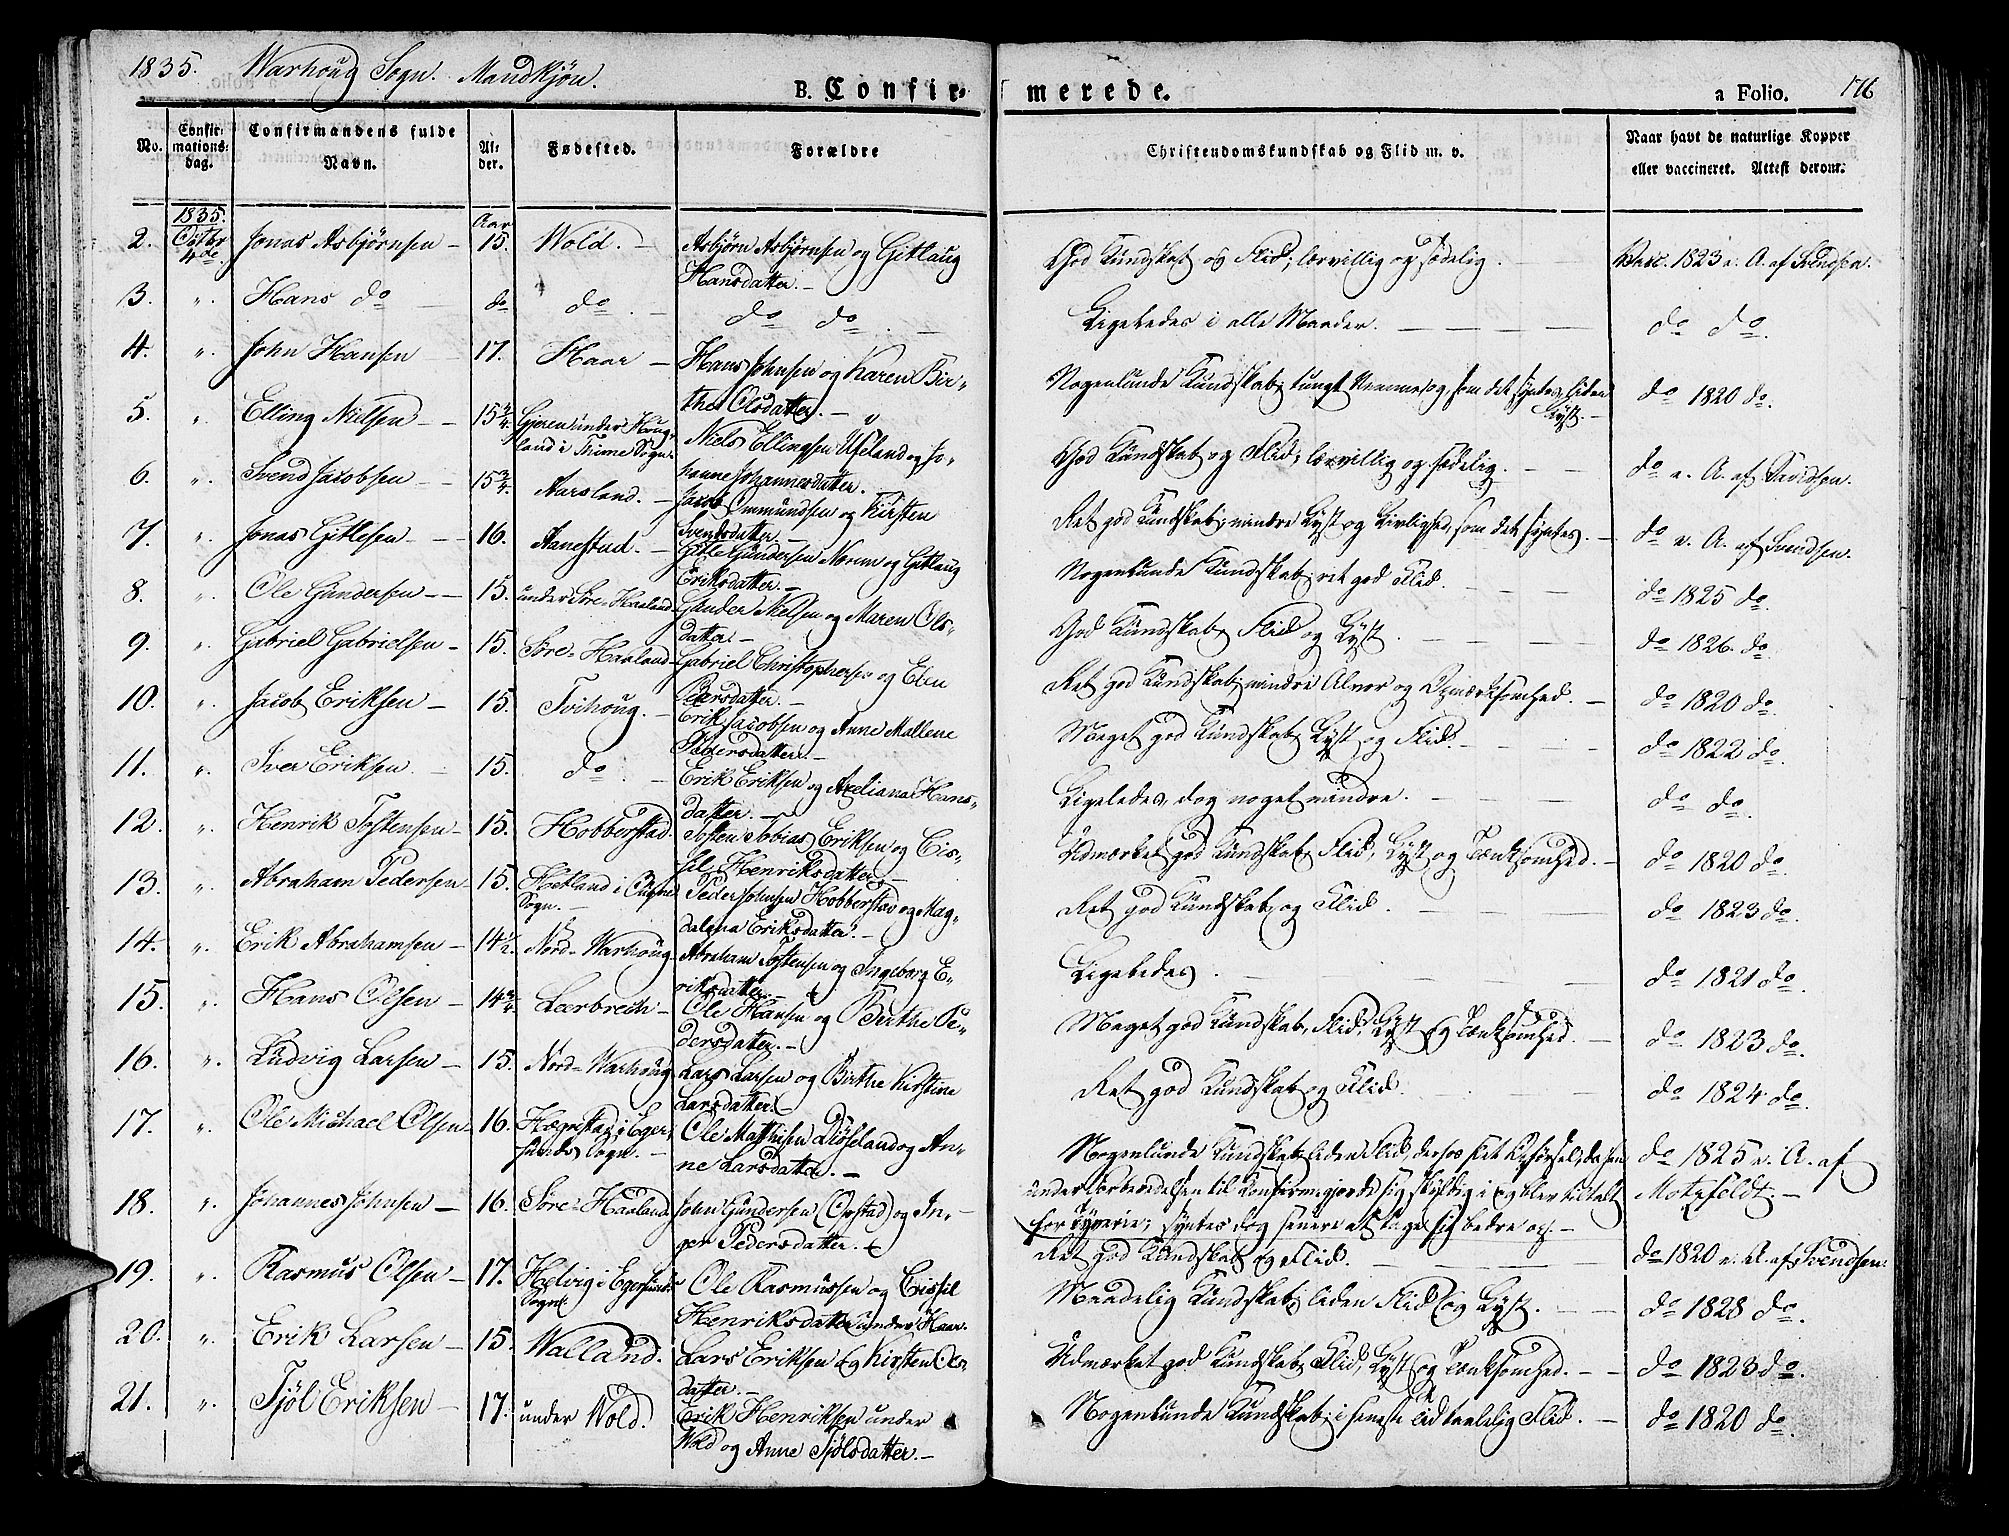 1835. Warhoug Sogn. Mandkjøn.
B. Confirmerede.
a Folio. 176
No. Confirmations-dag. Confirmandens fulde Navn. Alder. Fødested. Forældre Christendomskundskab og Flid m. v. Naar havt de naturlige Kopper eller vaccineret. Attest derom.
2. 1835. Octbr 4de. Jonas Asbjørnsen - Aar 15. Wold. - Asbjørn Asbjørnsen og Gitlaug Hansdatter. - God Kundskab og Flid; lærvillig og sædelig. Vacc. 1823 e. A. af Svendsen.
3. ". Hans do do do. - do do. - Ligeledes i alle Maader. do do.
4. ". John Hansen - 17. Haar - Hans Johnsen og Karen Birthe Olsdatter. - Nogenlunde Kundskab; tungt Nemme og, som det syntes, liden Lyst. - do 1820 do.
5. ". Elling Nielsen - - 15 3/4. Gjeren under Houg-land i Thime Sogn. Niels Ellingsen Ueland og Johanne Johannesdatter. God Kundskab og Flid; lærvillig og sædelig. do e. A. af Davidsen.
6. ". Svend Jacobsen - - 15 3/4. Aarsland. - Jacob Ommundsen og Kirsten Svendsdatter. - Ret god Kundskab; mindre Lyst og Livlighed, som det syntes. - do e. A. af Svendsen.
7. ". Jonas Gitlesen - - 16. Aanestad. - Gitle Gundersen Norem og Gitlaug Eriksdatter. - Nogenlunde Kundskab; ret god Flid. do 1825 do.
8. ". Ole Gundersen - - 15. under Søre-Haaland Gunder Nielsen og Maren Olsdatter. - God Kundskab, Flid og Lyst. do 1826. do.
9. ". Gabriel Gabrielsen - 15. Søre-Haaland Gabriel Christophersen og Elen Peersdatter. - Ret god Kundskab; mindre Alvor og Opmærksomhed. - do 1820 do.
10. ". Jacob Eriksen - 15. Tvihoug. - Erik Jacobsen og Anne Mallene Pedersdatter. - Meget god Kundskab, Lyst og Flid. do 1822 do.
11. ". Iver Eriksen. - 15. do. - Erik Eriksen og Axeliana Hansdatter. - Ligeledes, dog noget mindre. do do.
12. ". Henrik Tostensen - 15. Hobberstad. Tosten Tobias Eriksen og Cissil Henriksdatter. - Udmærket god Kundskab, Flid, Lyst og Tænksomhed. - do 1820 do.
13. ". Abraham Pedersen - 15. Hetland i Ougne Sogn. - Peder Johnsen Hobberstad og Magdalena Eriksdatter. - Ret god Kundskab og Flid. do 1823 do.
14. ". Erik Abrahamsen - 14 1/2. Nord-Warhoug Abraham Tostensen og Ingeborg Eriksdatter. - Ligeledes. do 1821 do.
15. ". Hans Olsen - 14 3/4. Lerbrech - Ole Hansen og Berthe Pedersdatter. - Meget god Kundskab, Flid, Lyst og Tænksomhed. do 1823 do.
16. ". Ludvig Larsen - 15. Nord-Warhoug Lars Larsen og Birthe Kirstine Larsdatter. - Ret god Kundskab og Flid. do 1824 do.
17. ". Ole Michael Olsen 16. Hægrestad i Egersunds Sogn. - Ole Mathisen Diøseland og Anne Larsdatter. - Nogenlunde Kundskab, liden Flid, dertil slet Opførsel, da han under Forberedelsen til Confirm. gjorde sig skyldig i og blev tiltalt for Tyverie; syntes dog senere at tage sig bedre op. - do 1825 e. A. af Motzfeldt. -
18. ". Johannes Johnsen - 16. Søre-Haaland John Gundersen (Opstad) og Inger Pedersdatter. - Ret god Kundskab og Flid. do 1820 e. A. af Svendsen.
19. ". Rasmus Olsen - 17. Helvig i Egersunds Sogn. Ole Rasmussen og Cissil Henriksdatter under Haar. Maadelig Kundskab; liden Flid og Lyst. do 1828 do.
20. ". Erik Larsen - 15. Walland. Lars Eriksen og Kirsten Olsdatter. - Udmærket god Kundskab, Flid, Lyst og Tænksomhed. - - do 1823 do.
21. ". Tjøl Eriksen - 17. under Wold. Erik Henriksen under Wold og Anne Tjølsdatter. - Nogenlunde Kundskab; i seneste Tid taalelig Flid. - do 1820 do.